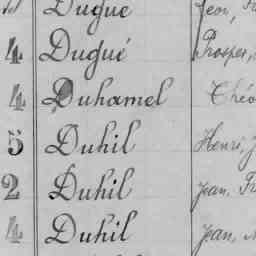 Dugué Jean,
4 Dugué Prosper,
4 Duhamel Théo
5 Duhil Henri, J
2 Duhil Jean, Fr
4 Duhil Jean,